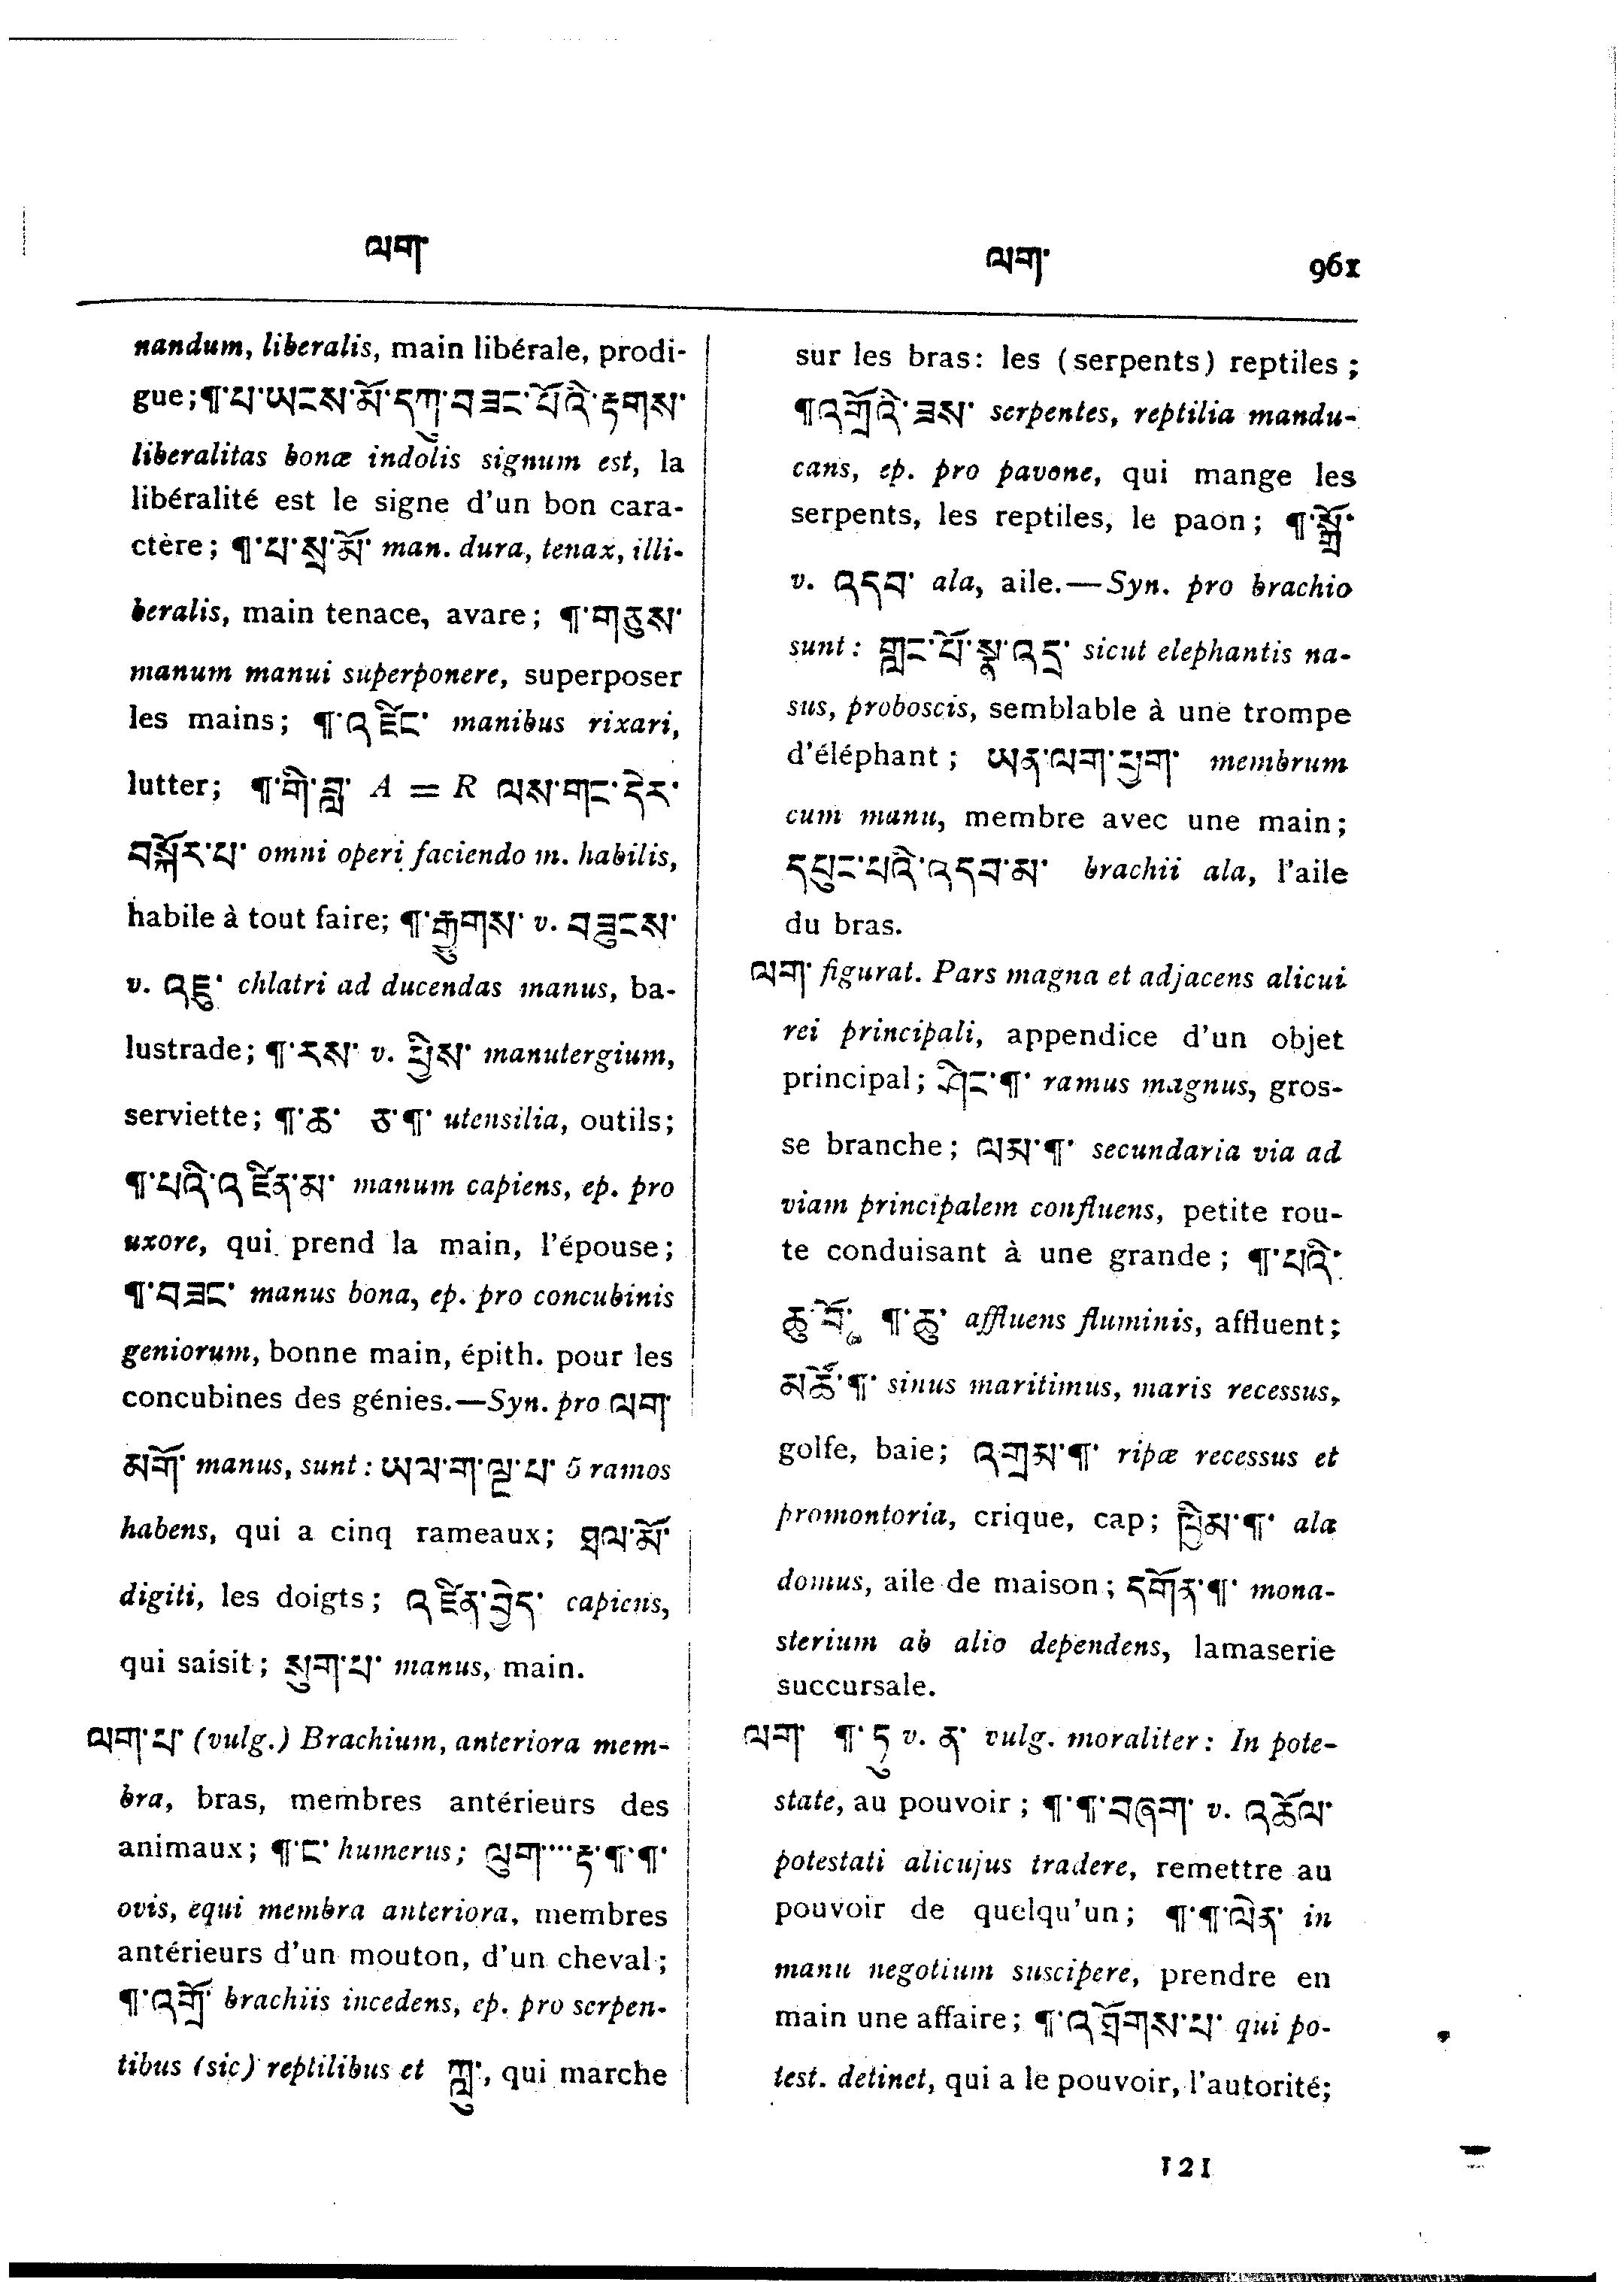 ལག་
ལག་ 961
nandum, liberalis, main libérale, prodi-
gue; ¶་པ་ཡངས་མོ་དཀུ་བཟང་པོའི་རྟགས་
liberalitas bonæ indolis signum est, la
libéralité est le signe d'un bon cara-
ctère; ¶་པ་སྲ་མོ་ man. dura, tenax, illi-
beralis, main tenace, avare; ¶་གཅུས་
manum manui superponere, superposer
les mains; ¶་འཛིང་ manibus rixari,
lutter; ¶་གི་བླ་ A = R ལས་གང་དེར་
བསྐོར་པ་ omni operi faciendo m. habilis,
habile à tout faire; ¶་རྒྱུགས་ v. བཟུངས་
v. འཇུ་ chlatri ad ducendas manus, ba-
lustrade; ¶་རས་ v. ཕྱིས་ manutergium,
serviette; ¶་ཆ་ ཅ་¶་ utensilia, outils;
¶་པའི་འཛིན་མ་ manum capiens, ep. pro
uxore, qui prend la main, l'épouse;
¶་བཟང་ manus bona, ep. pro concubinis
geniorum, bonne main, épith. pour les
concubines des génies.—Syn. pro ལག་
མགོ་ manus, sunt: ཡལ་ག་ལྔ་པ་ 5 ramos
habens, qui a cinq rameaux; ཐལ་མོ་
digiti, les doigts; འཛིན་བྱེད་ capiens,
qui saisit; སུག་པ་ manus, main.
ལག་པ་ (vulg.) Brachium, anteriora mem-
bra, bras, membres antérieurs des
animaux; ¶་ང་ humerus; ལུག་···རྟ་¶་¶་
ovis, equi membra anteriora, membres
antérieurs d'un mouton, d'un cheval;
¶་འགྲོ་ brachiis incedens, ep. pro serpen-
tibus (sic) reptilibus et ཀླུ་, qui marche
sur les bras: les (serpents) reptiles;
¶འགྲོའི་ཟས་ serpentes, reptilia mandu-
cans, ep. pro pavone, qui mange les
serpents, les reptiles, le paon; ¶་སྒྲོ་
v. འདབ་ ala, aile.—Syn. pro brachio
sunt: གླང་པོ་སྣ་འདྲ་ sicut elephantis na-
sus, proboscis, semblable à une trompe
d'éléphant; ཡན་ལག་ཕྱག་ membrum
cum manu, membre avec une main;
དཔུང་པའི་འདབ་མ་ brachii ala, l'aile
du bras.
ལག་ figurat. Pars magna et adjacens alicui
rei principali, appendice d'un objet
principal; ཤིང་¶་ ramus magnus, gros-
se branche; ལམ་¶་ secundaria via ad
viam principalem confluens, petite rou-
te conduisant à une grande; ¶་པའི་
ཆུ་བོ་ ¶་ཆུ་ affluens fluminis, affluent;
མཚོ་¶་ sinus maritimus, maris recessus,
golfe, baie; འགྲམ་¶་ ripæ recessus et
promontoria, crique, cap; ཁྱིམ་¶་ ala
domus, aile de maison; དགོན་¶་ mona-
sterium ab alio dependens, lamaserie
succursale.
ལག་ ¶་ཏུ v. ན་ vulg. moraliter: In pote-
state, au pouvoir; ¶་¶་བཞག་ v. འཆོལ་
potestati alicujus tradere, remettre au
pouvoir de quelqu'un; ¶་¶་ལེན་ in
manu negotium suscipere, prendre en
main une affaire; ¶་འཐོགས་པ་ qui po-
test. detinet, qui a le pouvoir, l'autorité;
121